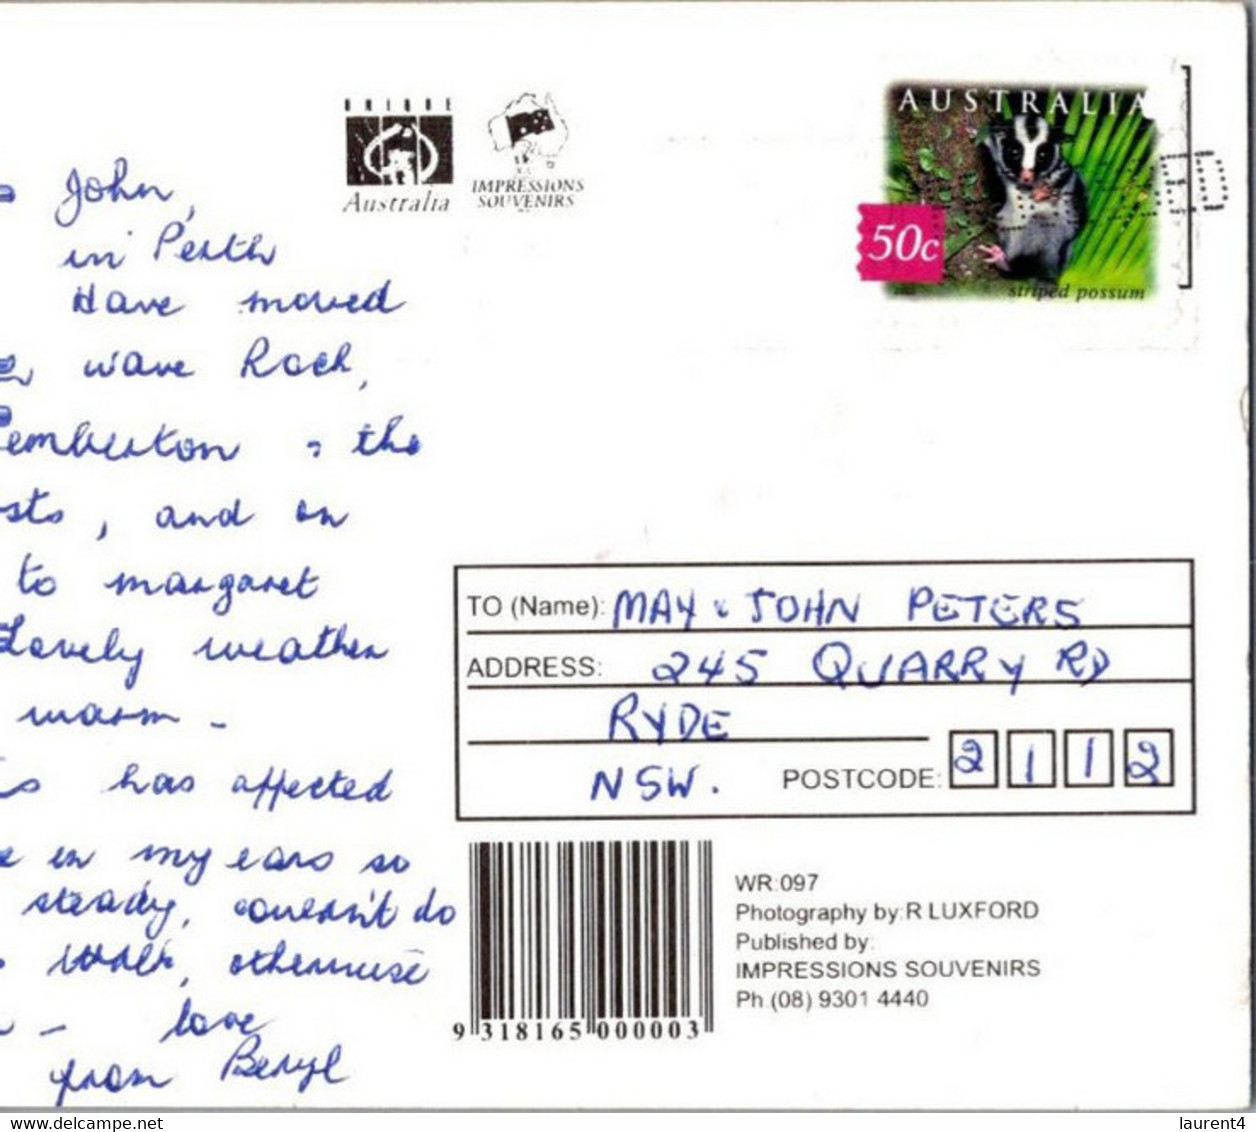 John,
in Perth
Have moved
wave Rock,
Pemberton, the
sts, and on
to margaret
Lovely weather
warm -
has affected
in my ears so
steady, couldn't do
walk, otherwise
- love
from Beryl
UNIQUE
Australia
IMPRESSIONS
SOUVENIRS
AUSTRALIA
50c
striped possum
TO (Name): MAY & JOHN PETERS
ADDRESS: 245 QUARRY RD
RYDE
NSW. POSTCODE: 2112
9 318165 000003
WR:097
Photography by: R LUXFORD
Published by:
IMPRESSIONS SOUVENIRS
Ph (08) 9301 4440
laurent4